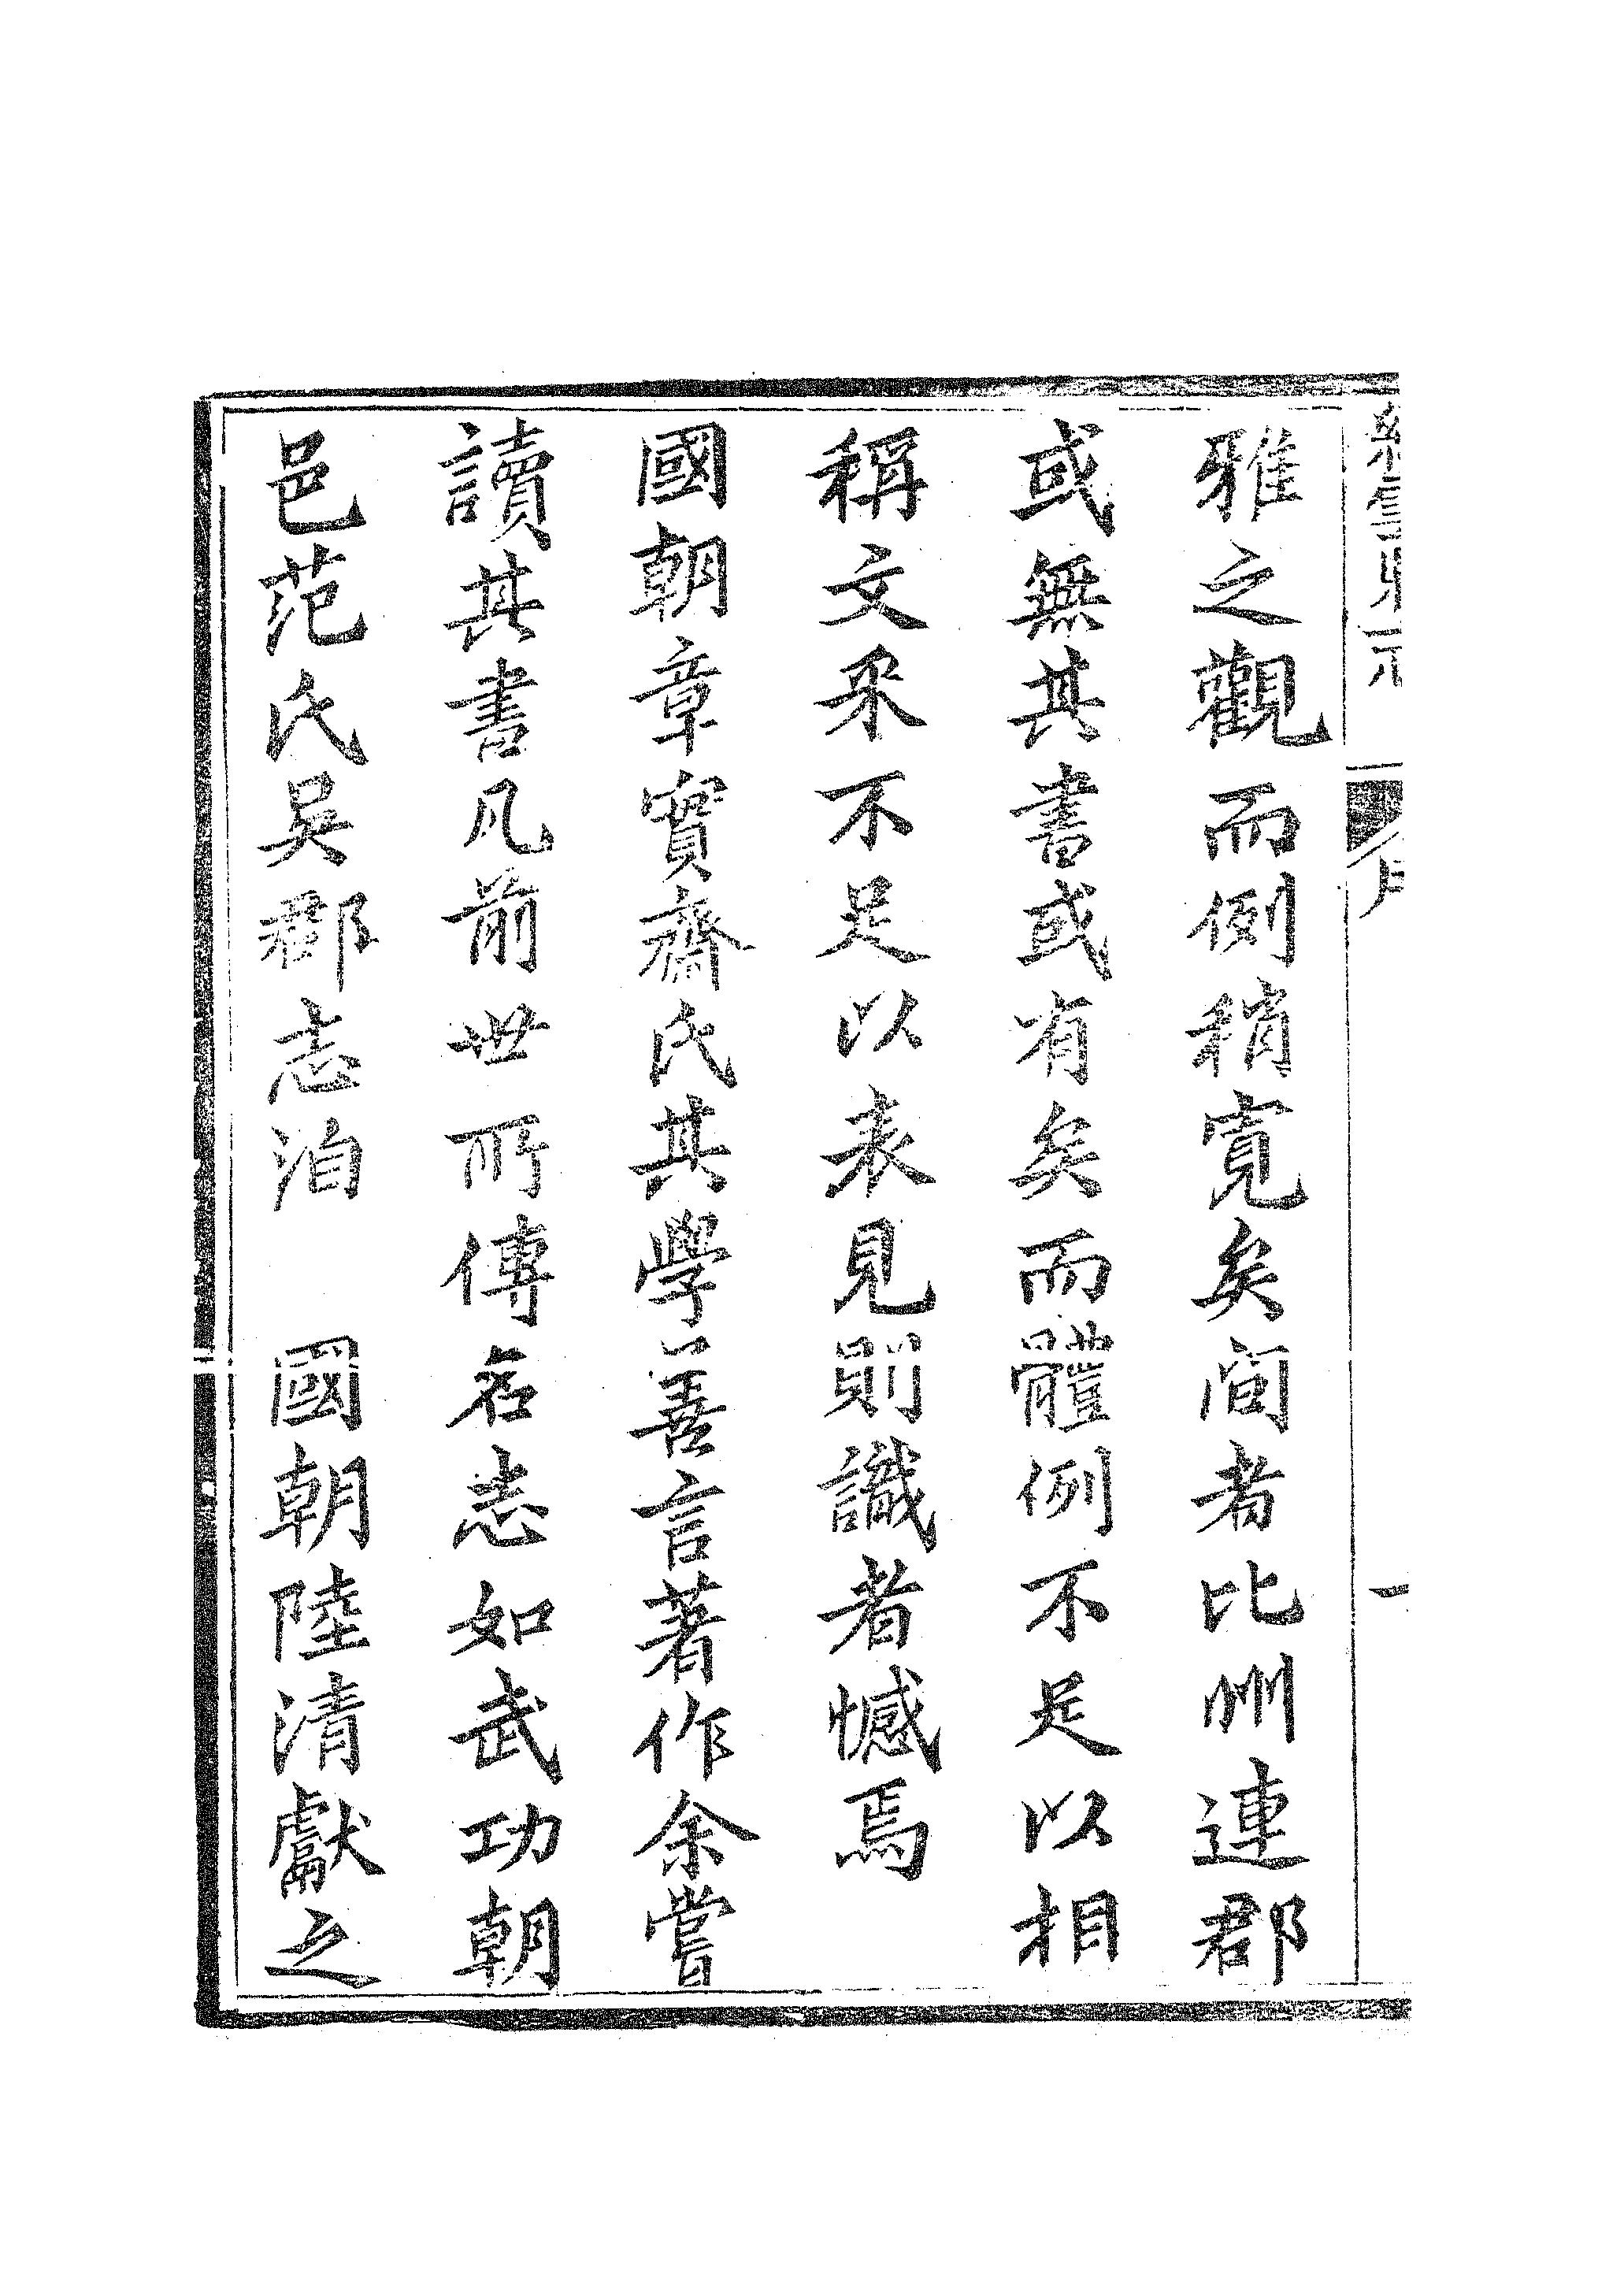 雅之觀而例稍寬矣間者比州連郡
或無其書或有矣而體例不足以相
稱文采不足以表見則識者憾焉
國朝章實齋氏其學善言著作余嘗
讀其書凡前世所傳名志如武功朝
邑范氏吳郡志洎　國朝陸清獻之